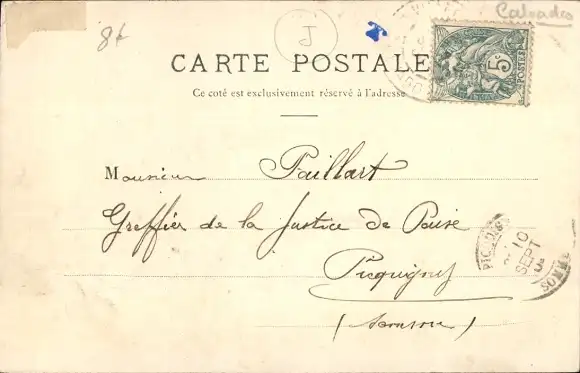 8f
J
Calvados
CARTE POSTALE
Ce coté est exclusivement réservé à l'adresse
5c
POSTES
Monsieur Paillart
Greffier de la Justice de Paix
Picquigny
(Somme)
10
SEPT
SOMME